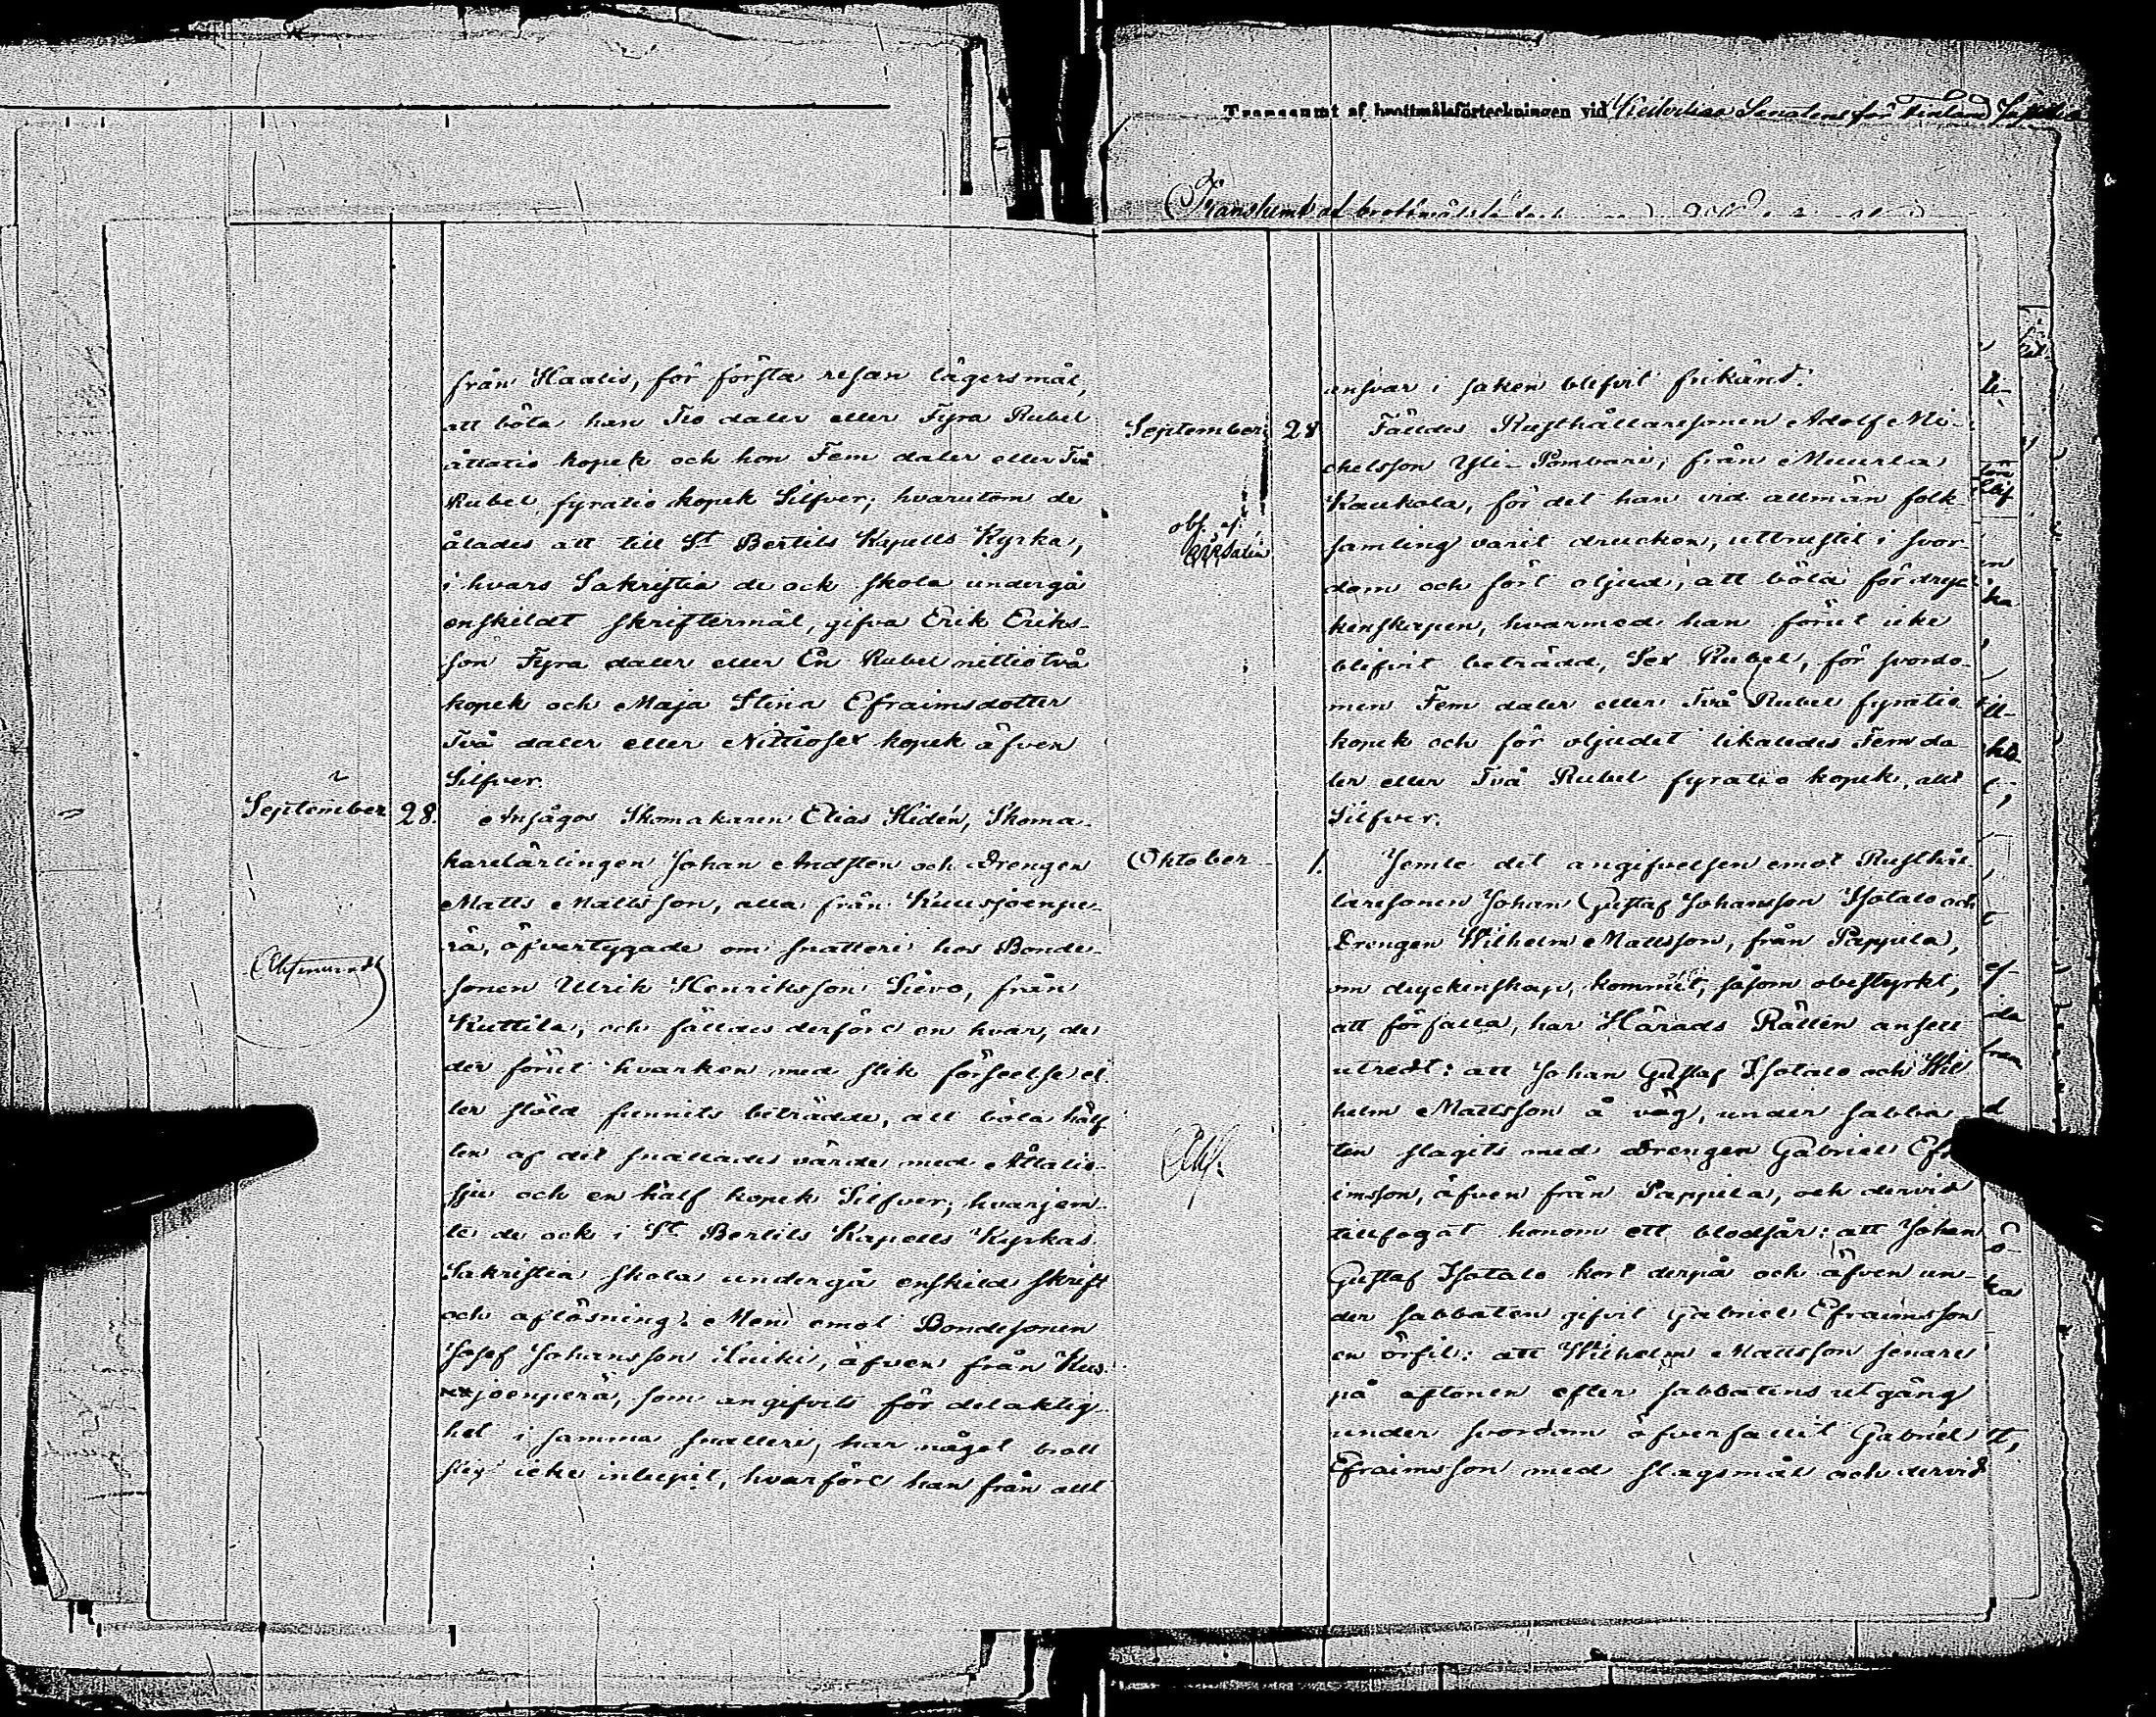 från Haalis, för första resan lägersmål,
att böta han Tio daler eller Fyra Rubel
åttatio kopek och hon Fem daler eller Två
Rubel fyratio kopek Silfver; hvarutom de
ålades att till St Bertils Kapells Kyrka,
i hvars Sakristia de ock skola undergå
enskildt skriftermål, gifva Erik Eriks-
son Fyra daler eller En Rubel nittiotvå
kopek och Maja Stina Efraimsdotter
Två daler eller Nittiosex kopek äfven
Silfver.
September 28. Ansågos Skomakaren Elias Hidén, Skoma-
karelärlingen Johan Andsten och Drengen
Matts Mattsson, alla från Kuusjoenpe-
rä, öfvertygade om snatteri hos Bonde-
sonen Ulrik Henriksson Sievo, från
Kuttila, och fälldes derföre en hvar, de
der förut hvarken med slik förseelse el-
ler stöld funnits beträdde, att böta hälf-
ten af det snattades värde med Åttatio-
sju och en half kopek Silfver, hvarjem-
te de ock i St Bertils Kapells Kyrkas
Sakristia skola undergå enskild skrift
och aflösning. Men emot Bondesonen
Josef Johansson Kuiki, äfven från Kuu-
sjoenperä, som angifvits för delaktig-
het i samma snatteri, har något brott
sig icke inlupit, hvarföre han från allt
Transsumt af brottmålsförteckningen vid Kejserliga Senatens för Finland
Transsumt af
ansvar i saken blifvit frikänd.
September 28 Fälldes Rusthållaresonen Adolf Mi-
chelsson Yli-Pombari, från Muurla
Kaukola, för det han vid allmän folk-
samling varit drucken, utbrustit i svor-
dom och fört oljud, att böta för dryc-
kenskapen, hvarmed han förut icke
blifvit beträdd, Sex Rubel, för svordo-
men Fem daler eller Två Rubel fyratio
kopek och för oljudet likaledes Fem da-
ler eller Två Rubel fyratio kopek, allt
Silfver.
Oktober 1. Jemte det angifvelsen emot Rusthål-
laresonen Johan Gustaf Johansson Isotalo och
Drengen Wilhelm Mattsson, från Pappila,
om dryckenskap, kommit, såsom obestyrkt,
att förfalla, har Härads Rätten ansett
utredt: att Johan Gustaf Isotalo och Wil
helm Mattsson å väg, under sabba-
ten slagits med Drengen Gabriel Efra
imsson, äfven från Pappila, och dervid
tillfogat honom ett blodsår: att Johan
Gustaf Isotalo kort derpå och äfven un-
der sabbaten gifvit Gabriel Efraimsson
en örfil: att Wilhelm Mattsson senare
på aftonen efter sabbatens utgång
under svordom öfverfallit Gabriel
Efraimsson med slagsmål och dervid